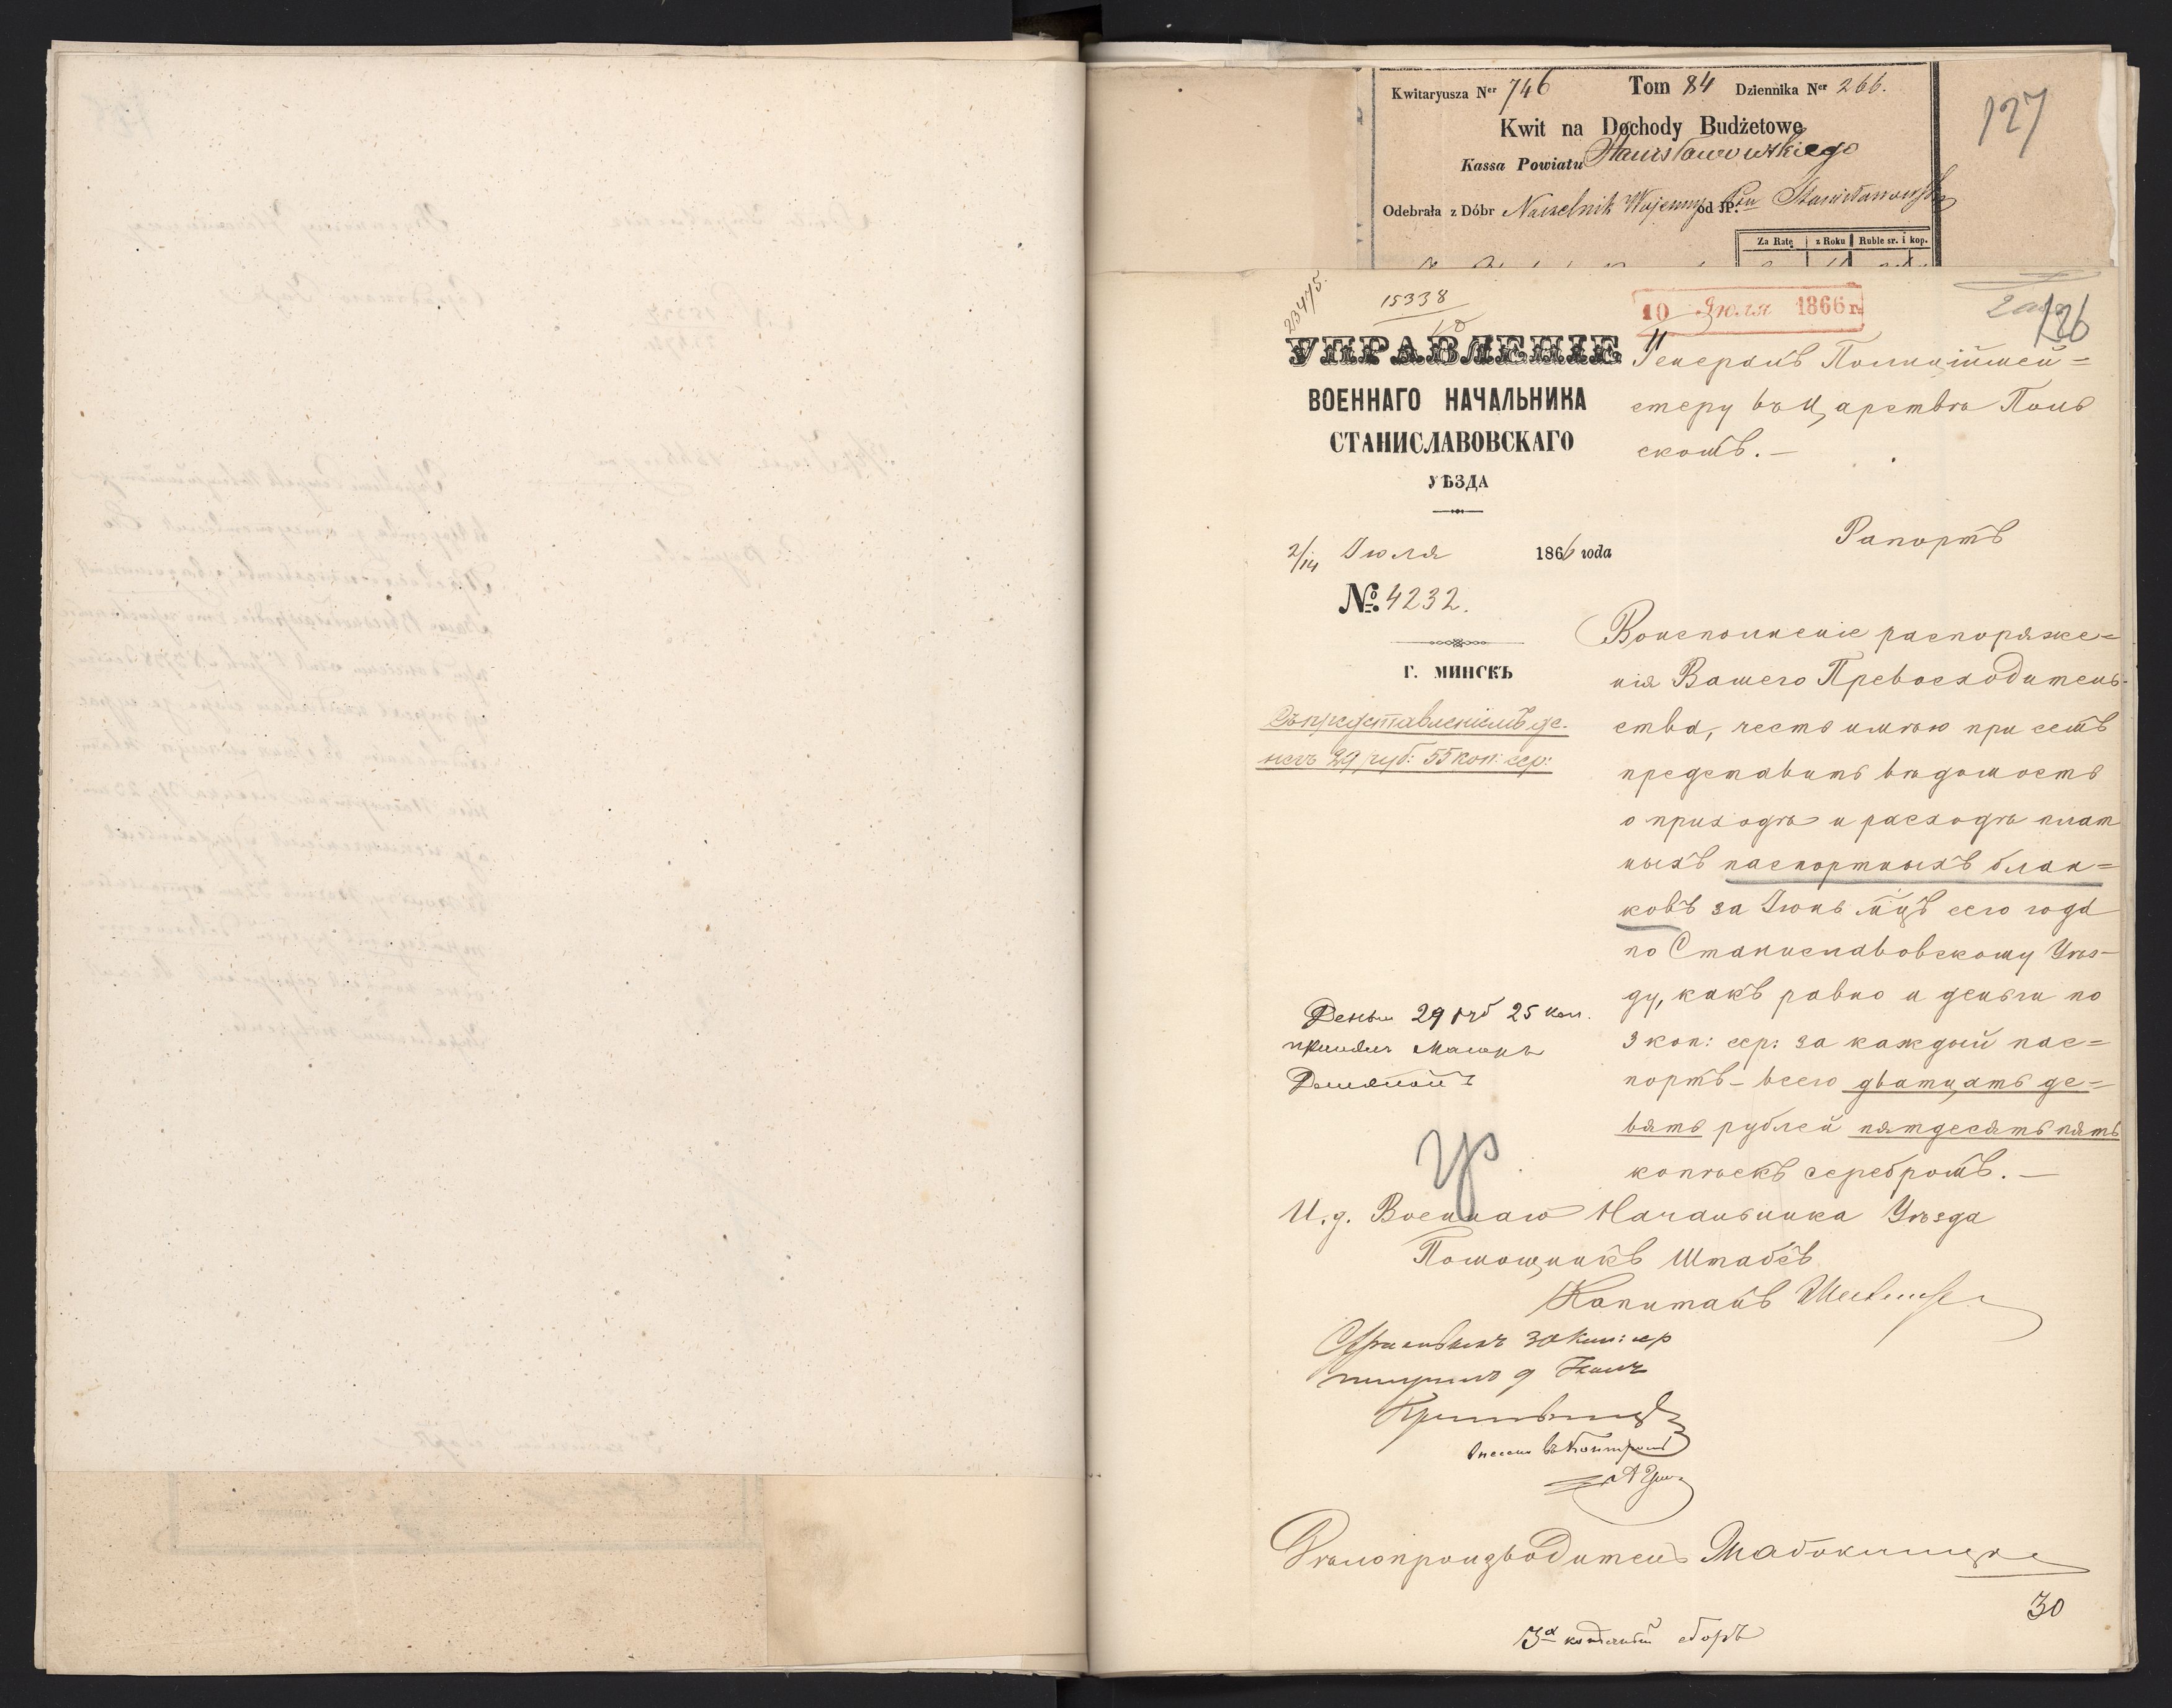 Kwitaryusza Ner 746 Tom 84 Dziennika Ner 266.
Kwit na Dochody Budżetowe
Kassa Powiatu Stanisławowskiego
Odebrała z Dóbr Naczelnik Wojenny od JP. Ptu Stanisławowsk
Za Ratę z Roku Ruble sr. i kop.
127
23475.
15338
10 Июля 1866 г.
126
УПРАВЛЕНІЕ
ВОЕННАГО НАЧАЛЬНИКА
СТАНИСЛАВОВСКАГО
УѢЗДА
2/14 Июля 1866 года
№ 4232.
Г. МИНСКЪ
Съ представленіемъ де-
негъ 29 руб: 55 коп: сер:
Генералъ Полиціймей=
стеру въ Царствѣ Поль
скомъ. —
Рапортъ
Во исполненіе распоряже=
нія Вашего Превосходитель-
ства, честь имѣю при семъ
представить вѣдомость
о приходѣ и расходѣ плат
ныхъ паспортныхъ блан=
ковъ за Іюнь м̃цъ сего года
по Станиславовскому Уѣз-
ду, какъ равно и деньги по
3 коп: сер: за каждый пас=
портъ - всего дватцать де=
вять рублей пятдесять пять
копѣекъ серебромъ. —
Деньги 29 руб 25 коп.
принялъ
И. д. Военнаго Начальника Уѣзда
Помощникъ Штабсъ
Капитанъ
30 коп: сер
получилъ
Внесен въ Контроль
Дѣлопроизводитель
30
За сборъ